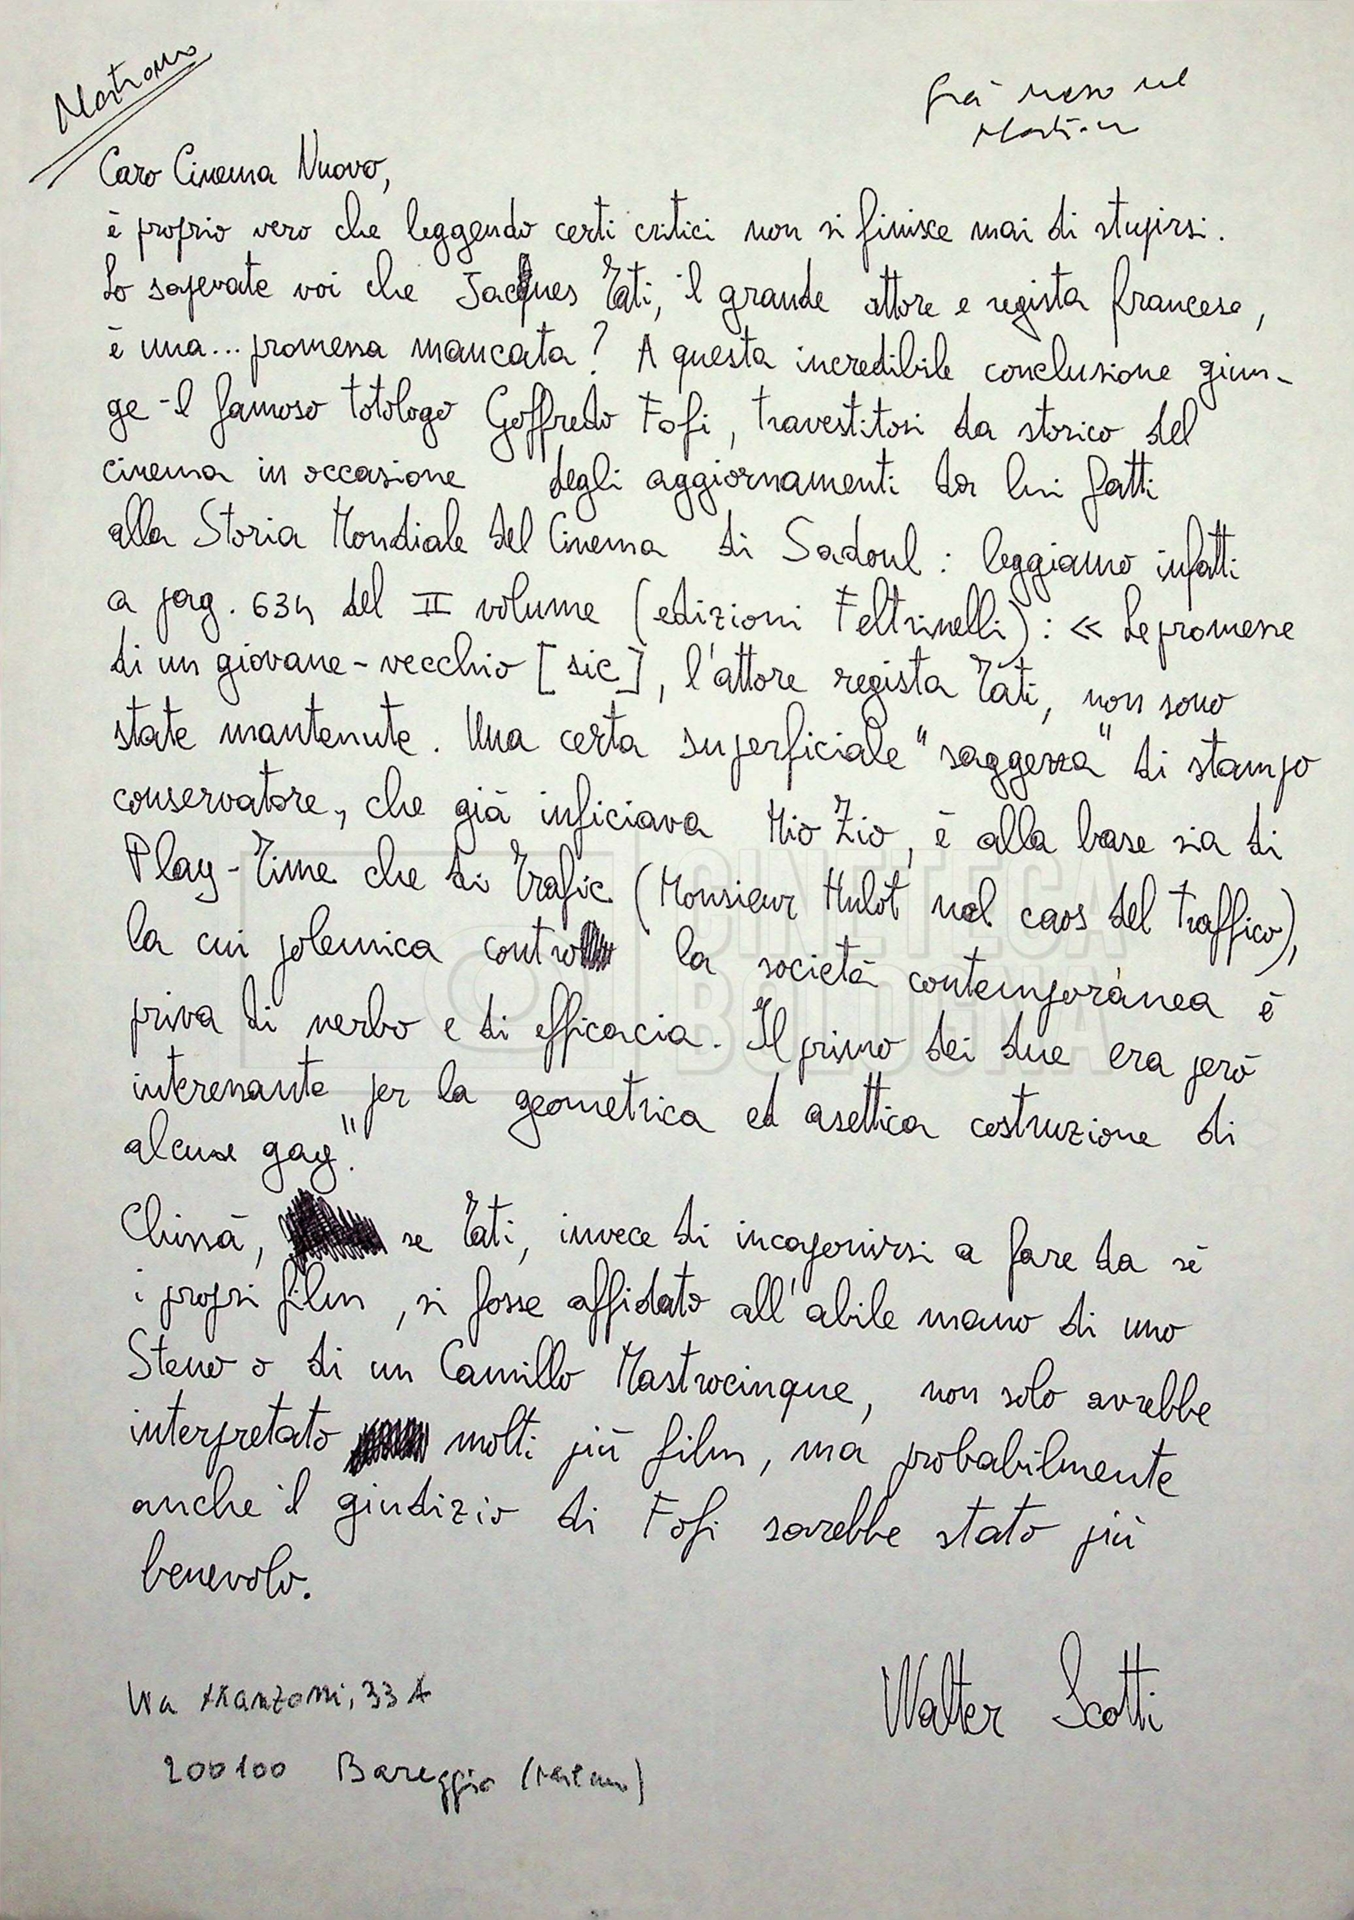 Già messo nel
Caro Cinema Nuovo,
è proprio vero che leggendo certi critici non si finisce mai di stupirsi.
Lo sapevate voi che Jacques Tati, il grande attore e regista francese,
è una... promessa mancata? A questa incredibile conclusione giun-
ge il famoso totologo Goffredo Fofi, travestitosi da storico del
cinema in occasione degli aggiornamenti da lui fatti
alla Storia Mondiale del Cinema di Sadoul: leggiamo infatti
a pag. 634 del II volume (edizioni Feltrinelli): « Le promesse
di un giovane-vecchio [sic], l'attore regista Tati, non sono
state mantenute. Una certa superficiale "saggezza" di stampo
conservatore, che già inficiava Mio Zio, è alla base sia di
Play-Time che di Trafic (Monsieur Hulot nel caos del traffico),
la cui polemica contro la società contemporanea è
priva di nerbo e di efficacia. Il primo dei due era però
interessante per la geometrica ed asettica costruzione di
alcune gag".
Chissà, se Tati, invece di incaponirsi a fare da sè
i propri film, si fosse affidato all'abile mano di uno
Steno o di un Camillo Mastrocinque, non solo avrebbe
interpretato molti più film, ma probabilmente
anche il giudizio di Fofi sarebbe stato più
benevolo.
Walter Scotti
Via Manzoni, 33 A
200100 Bareggio (Milano)
CINETECA
BOLOGNA